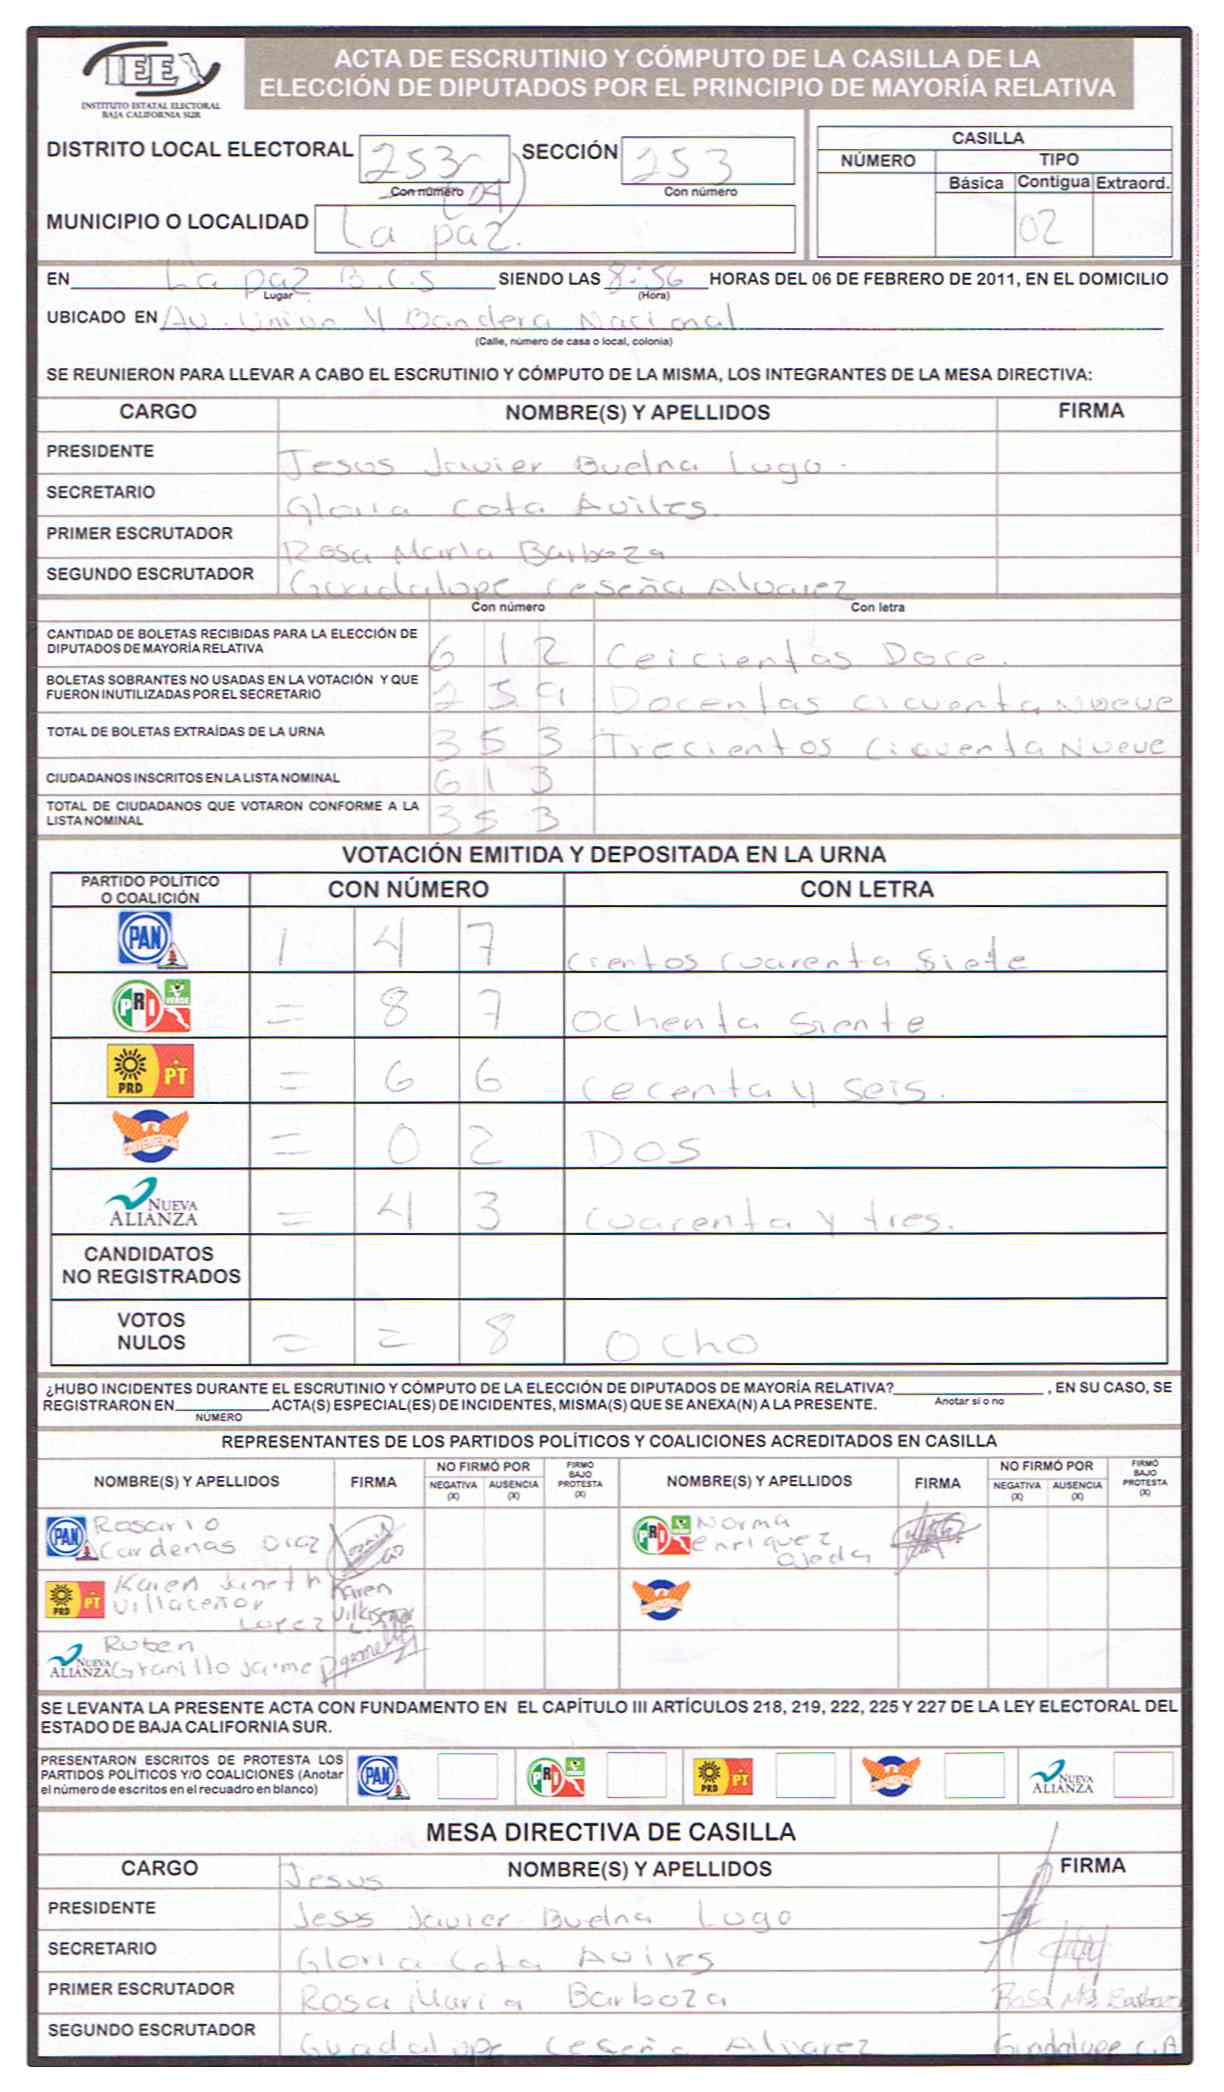 IEE
INSTITUTO ESTATAL ELECTORAL
BAJA CALIFORNIA SUR
ACTA DE ESCRUTINIO Y CÓMPUTO DE LA CASILLA DE LA
ELECCIÓN DE DIPUTADOS POR EL PRINCIPIO DE MAYORÍA RELATIVA
DISTRITO LOCAL ELECTORAL 253 SECCIÓN 253
Con número (04) Con número
MUNICIPIO O LOCALIDAD La paz.
CASILLA
NÚMERO TIPO
Básica Contigua Extraord.
02
EN La paz B.C.S SIENDO LAS 8:56 HORAS DEL 06 DE FEBRERO DE 2011, EN EL DOMICILIO
Lugar (Hora)
UBICADO EN Av. Union Y Bandera Nacional
(Calle, número de casa o local, colonia)
SE REUNIERON PARA LLEVAR A CABO EL ESCRUTINIO Y CÓMPUTO DE LA MISMA, LOS INTEGRANTES DE LA MESA DIRECTIVA:
CARGO NOMBRE(S) Y APELLIDOS FIRMA
PRESIDENTE Jesus Javier Buelna Lugo.
SECRETARIO Gloria Cota Aviles.
PRIMER ESCRUTADOR Rosa Maria Barboza
SEGUNDO ESCRUTADOR Guadalupe Ceseña Alvarez
Con número Con letra
CANTIDAD DE BOLETAS RECIBIDAS PARA LA ELECCIÓN DE
DIPUTADOS DE MAYORÍA RELATIVA 6 1 2 Ceicientas Doce.
BOLETAS SOBRANTES NO USADAS EN LA VOTACIÓN Y QUE
FUERON INUTILIZADAS POR EL SECRETARIO 2 5 9 Docentas cicuenta Nueve
TOTAL DE BOLETAS EXTRAÍDAS DE LA URNA 3 5 3 Trecientos Cicuenta Nueve
CIUDADANOS INSCRITOS EN LA LISTA NOMINAL 6 1 3
TOTAL DE CIUDADANOS QUE VOTARON CONFORME A LA
LISTA NOMINAL 3 5 3
VOTACIÓN EMITIDA Y DEPOSITADA EN LA URNA
PARTIDO POLÍTICO
O COALICIÓN CON NÚMERO CON LETRA
PAN 1 4 7 cientos cuarenta siete
PRI VERDE = 8 7 Ochenta siente
PRD PT = 6 6 cecenta y seis.
CONVERGENCIA = 0 2 Dos
NUEVA ALIANZA = 4 3 cuarenta y tres.
CANDIDATOS
NO REGISTRADOS
VOTOS
NULOS = = 8 Ocho
¿HUBO INCIDENTES DURANTE EL ESCRUTINIO Y CÓMPUTO DE LA ELECCIÓN DE DIPUTADOS DE MAYORÍA RELATIVA? , EN SU CASO, SE
Anotar si o no
REGISTRARON EN ACTA(S) ESPECIAL(ES) DE INCIDENTES, MISMA(S) QUE SE ANEXA(N) A LA PRESENTE.
NÚMERO
REPRESENTANTES DE LOS PARTIDOS POLÍTICOS Y COALICIONES ACREDITADOS EN CASILLA
NOMBRE(S) Y APELLIDOS FIRMA NO FIRMÓ POR NEGATIVA (X) AUSENCIA (X) FIRMÓ BAJO PROTESTA (X) NOMBRE(S) Y APELLIDOS FIRMA NO FIRMÓ POR NEGATIVA (X) AUSENCIA (X) FIRMÓ BAJO PROTESTA (X)
PAN Rosario
Cardenas Diaz
PRI Norma
enriquez
Ojeda
PRD PT Karen Janeth
Villaceñor
Lopez
Karen
Villaseñor
NUEVA ALIANZA Ruben
Granillo Jaime
SE LEVANTA LA PRESENTE ACTA CON FUNDAMENTO EN EL CAPÍTULO III ARTÍCULOS 218, 219, 222, 225 Y 227 DE LA LEY ELECTORAL DEL
ESTADO DE BAJA CALIFORNIA SUR.
PRESENTARON ESCRITOS DE PROTESTA LOS
PARTIDOS POLÍTICOS Y/O COALICIONES (Anotar
el número de escritos en el recuadro en blanco)
PAN PRI PRD PT NUEVA ALIANZA
MESA DIRECTIVA DE CASILLA
CARGO NOMBRE(S) Y APELLIDOS FIRMA
Jesus
PRESIDENTE Jesus Javier Buelna Lugo
SECRETARIO Gloria Cota Aviles
PRIMER ESCRUTADOR Rosa Maria Barboza Rosa Ma Barboza
SEGUNDO ESCRUTADOR Guadalupe Ceseña Alvarez Guadalupe C.A